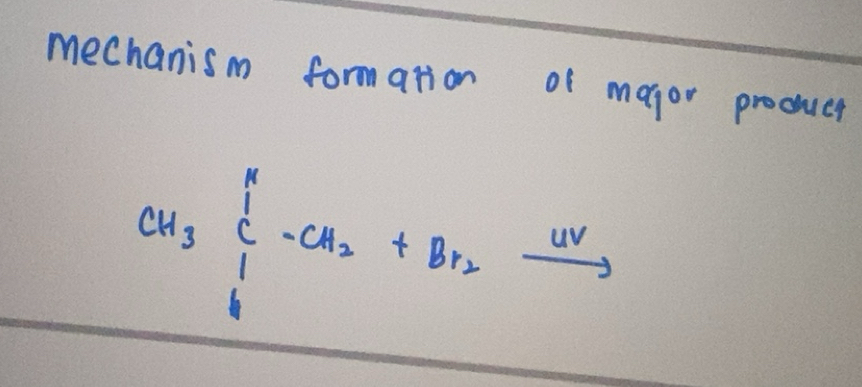 mechanism formation of major product
H
CH3 C -CH2 + Br2 uv